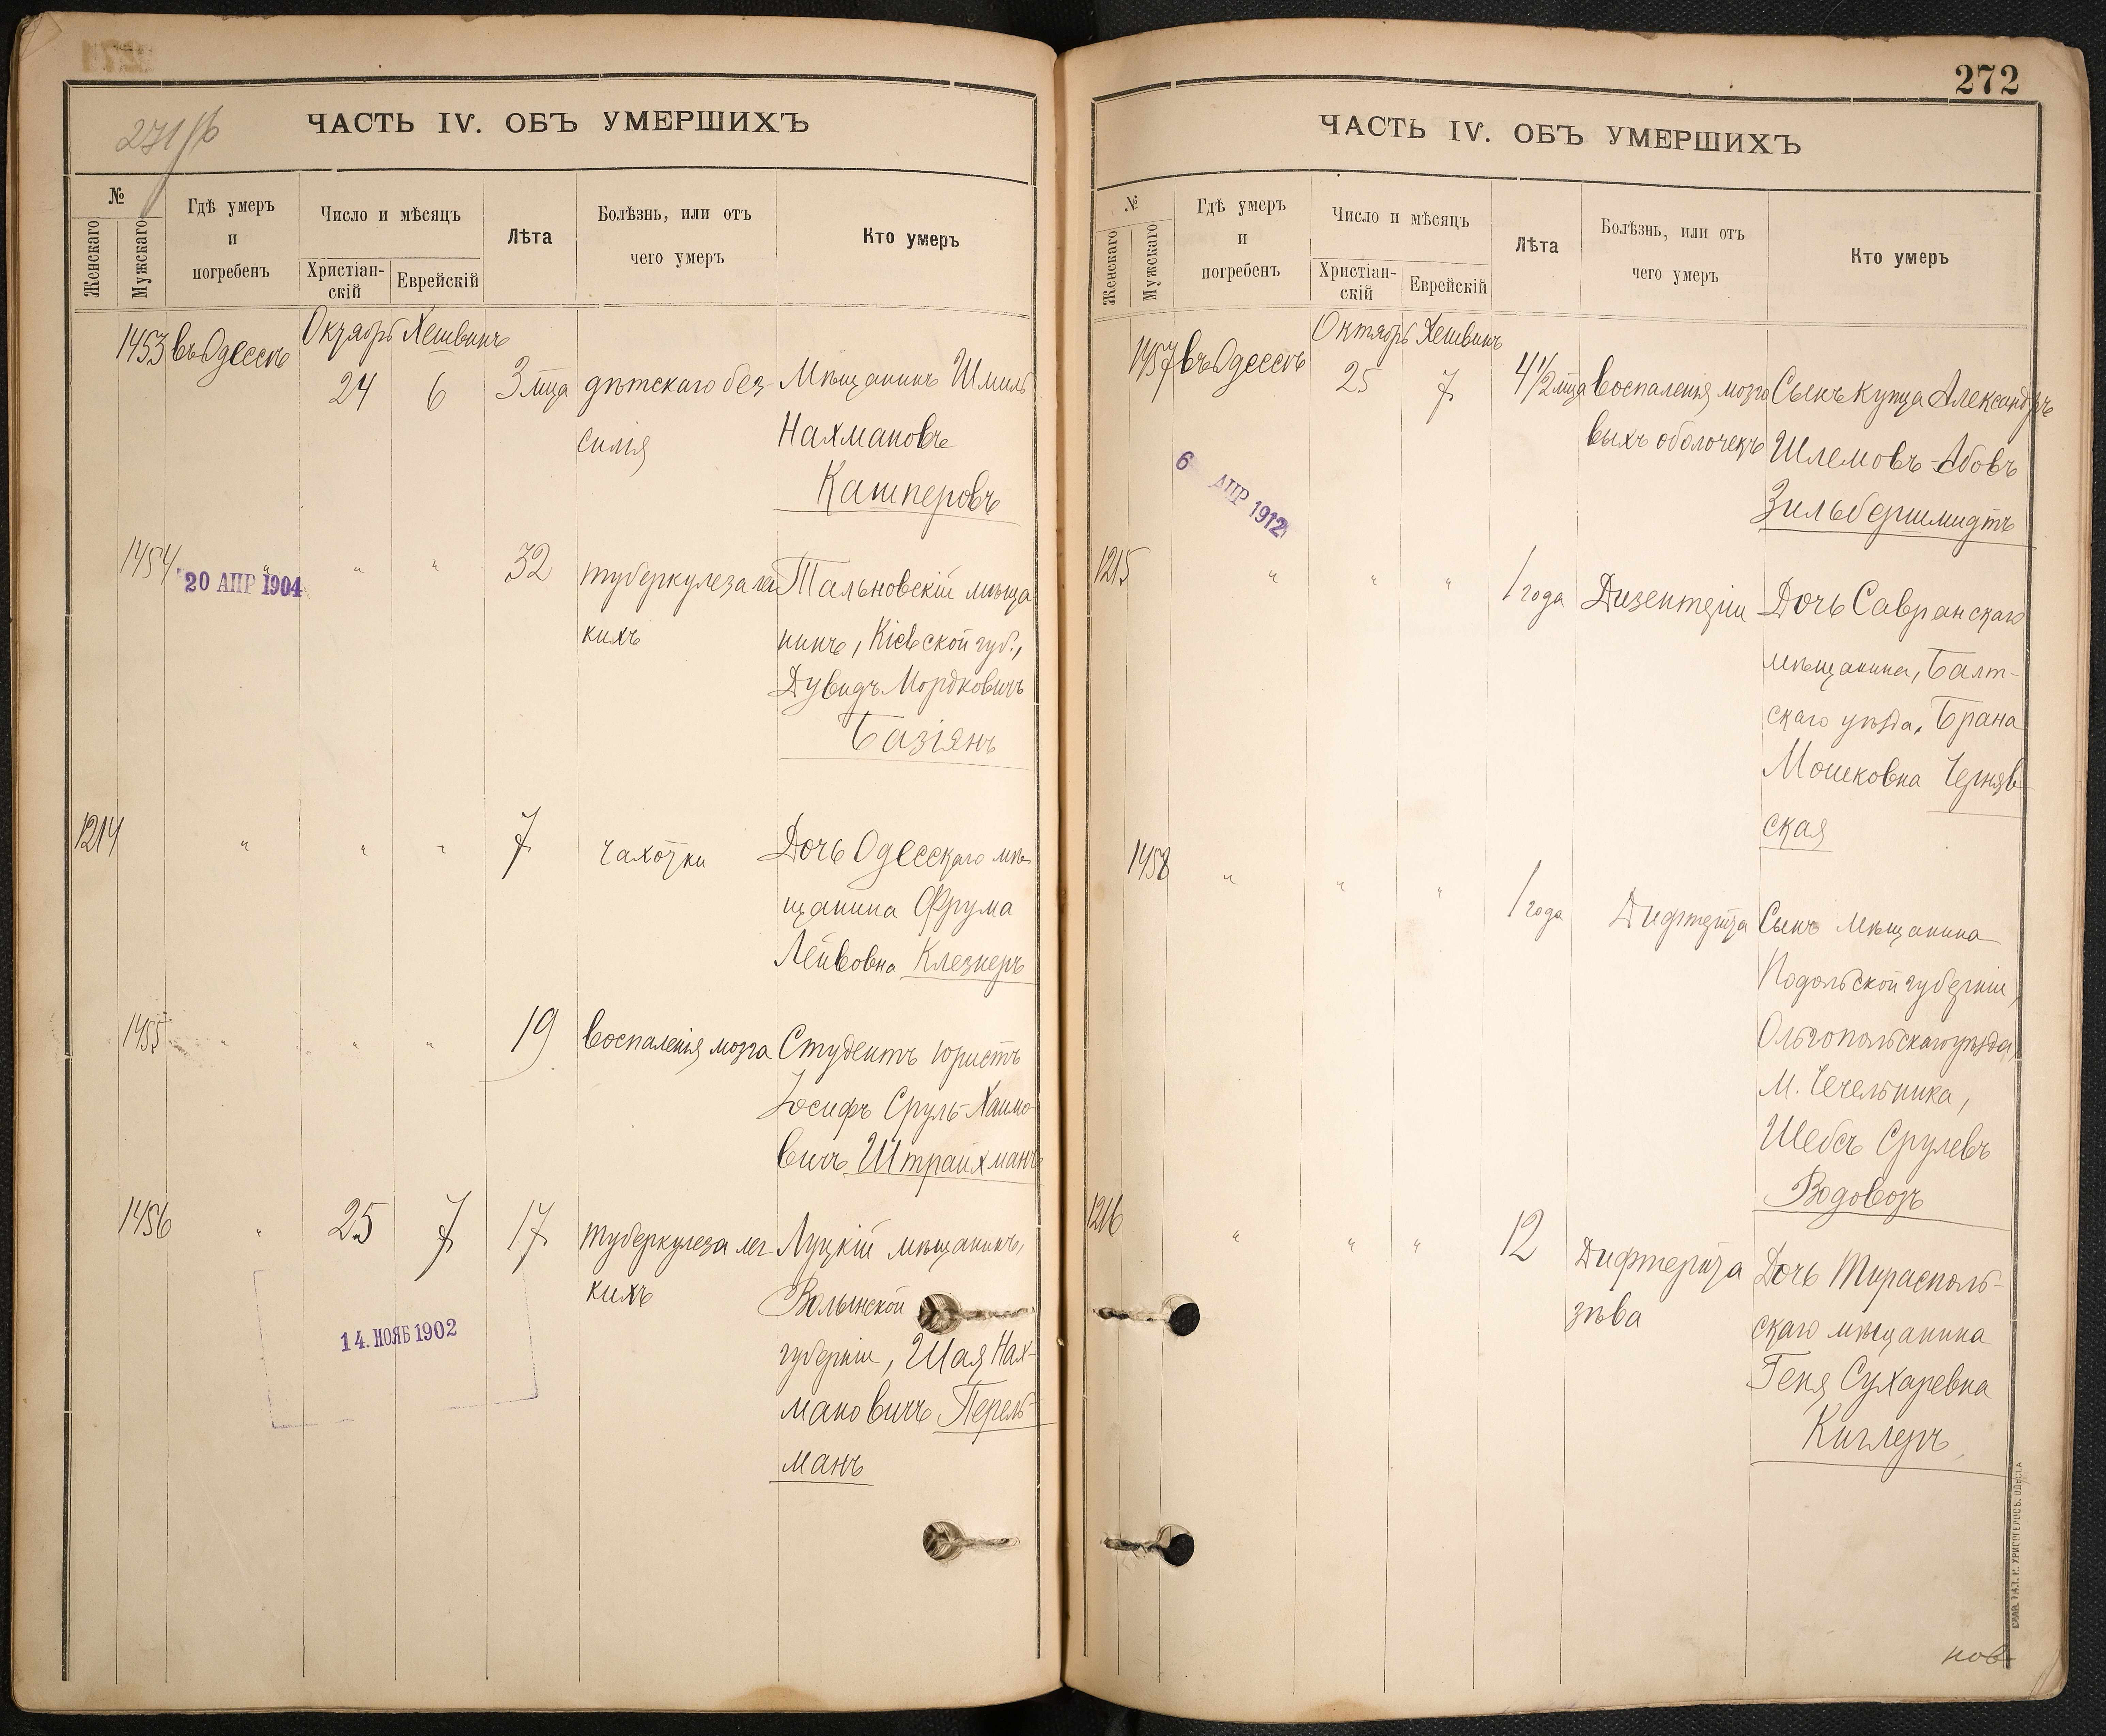 271/б
ЧАСТЬ IV. ОБЪ УМЕРШИХЪ
№
Женскаго
Мужскаго
Гдѣ умеръ
и
погребенъ
Число и мѣсяцъ
Христіан-
скій
Еврейскій
Лѣта
Болѣзнь, или отъ
чего умеръ
Кто умеръ
1453 въ Одессѣ Октябрь Хешвинъ
24 6 3 мца дѣтскаго без- Мѣщанинъ Шмиль
силія Нахмановъ
Кашперовъ
1454 " " " 32 туберкулеза лег Тальновскій мѣща
20 АПР 1904
кихъ нинъ, Кіевской губ.,
Дувидъ Мордковичъ
Базіянъ
1214 " " " 7 чахотки Дочь Одесскаго мѣ
щанина Фрума
Лейбовна Клезнеръ
1455 " " " 19 воспаленія мозга Студентъ юристъ
Іосифъ Сруль-Хаимо
вичъ Штрайхманъ
1456 " 25 7 17 туберкулеза лег Луцкій мѣщанинъ,
кихъ Волынской
губерніи, Шая Нах-
мановичъ Перель-
манъ
14. НОЯБ 1902
272
ЧАСТЬ IV. ОБЪ УМЕРШИХЪ
№
Женскаго
Мужскаго
Гдѣ умеръ
и
погребенъ
Число и мѣсяцъ
Христіан-
скій
Еврейскій
Лѣта
Болѣзнь, или отъ
чего умеръ
Кто умеръ
1457 въ Одессѣ Октябрь Хешвинъ
25 7 4 1/2 мца воспаленія мозго Сынъ купца Александръ
выхъ оболочекъ Шлемовъ-Абовъ
Зильбершмидтъ
6 АПР 1912
1215 " " " 1 года Дизентеріи Дочь Савранскаго
мѣщанина, Балт-
скаго уѣзда, Брана
Мошковна Черняв
ская
1458 " " " 1 года Дифтерита Сынъ мѣщанина
Подольской губерніи,
Ольгопольскаго уѣзда,
М. Чечельника,
Шебсъ Срулевъ
Водовозъ
1216 " " " 12 Дифтерита Дочь Тирасполь-
зѣва скаго мѣщанина
Геня Сухаревна
Киглеръ
нов